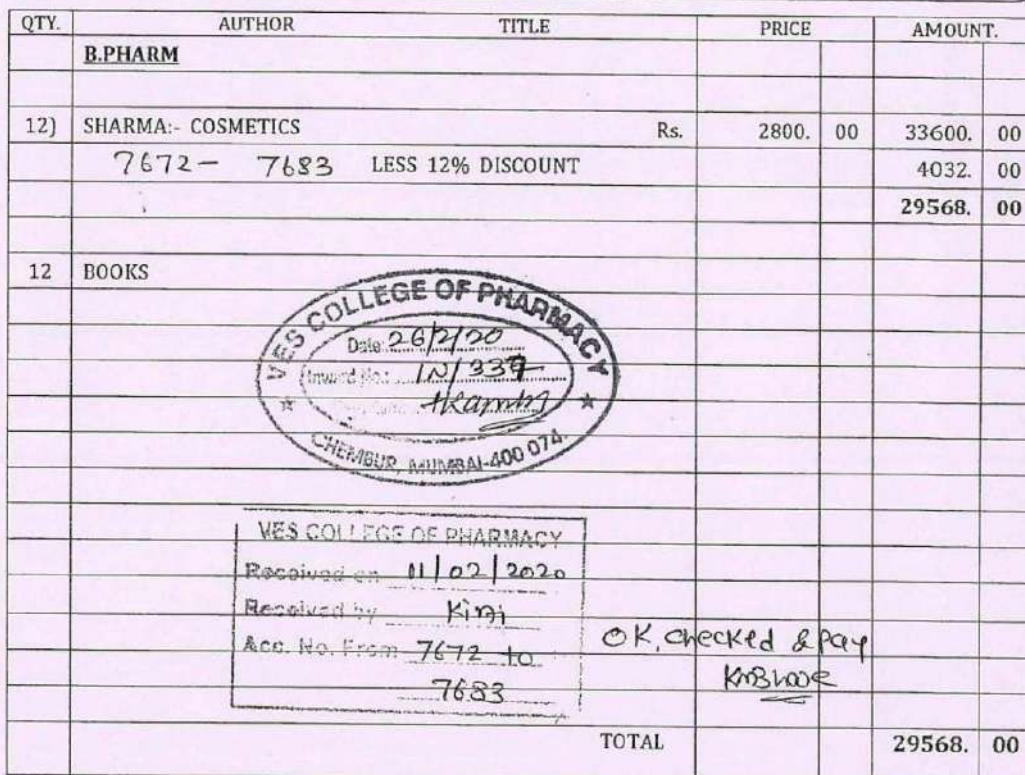 QTY. AUTHOR TITLE PRICE AMOUNT.
B.PHARM
12) SHARMA:- COSMETICS Rs. 2800. 00 33600. 00
7672 - 7683 LESS 12% DISCOUNT 4032. 00
29568. 00
12 BOOKS
VES COLLEGE OF PHARMACY
Date: 26/2/20
Inward No.: IN/337
CHEMBUR, MUMBAI-400 074.
VES COLLEGE OF PHARMACY
Received on 11/02/2020
Received by
Acc. No. From 7672 to
7683
OK, checked & pay
TOTAL 29568. 00